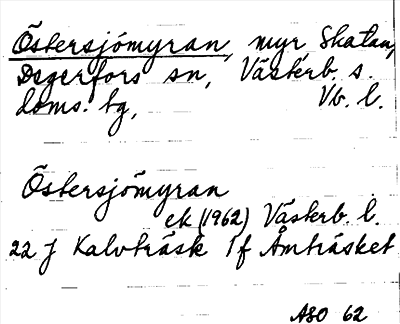 Östersjömyran, myr, Skatan,
Degerfors sn, Västerb. s.
doms. tg, Vb. l.
Östersjömyran
ek (1962) Västerb. l.
22 J Kalvträsk 1f Åmträsket
ASO 62